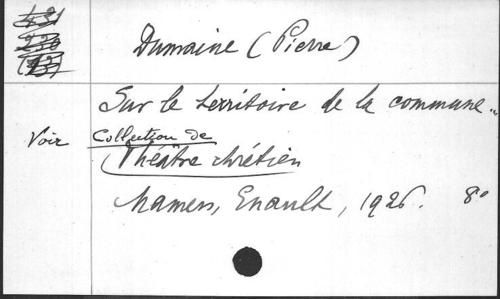 Dumaine (Pierre)
Sur le territoire de la commune„
Voir Collection de
Théâtre chrétien
Mamers, Enault, 1926. 8°